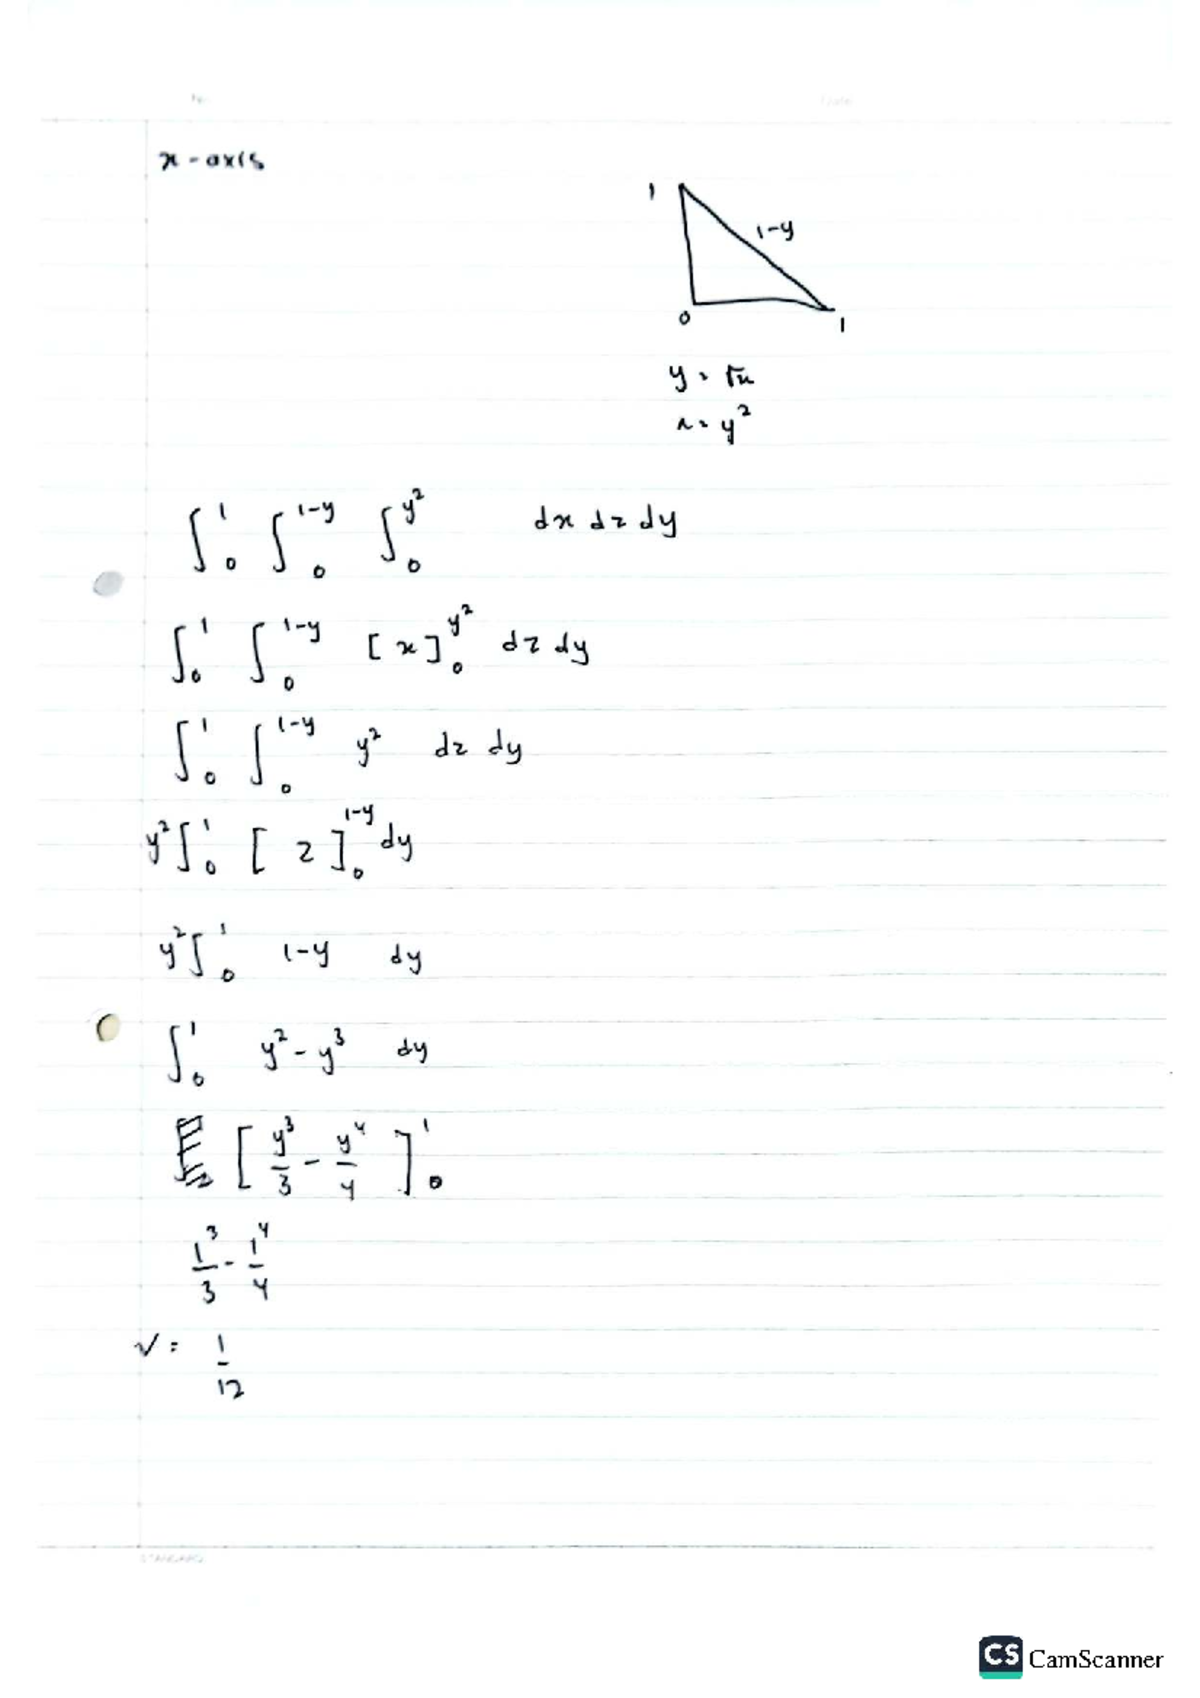 No
Date
x - axis
1
1-y
0
1
y = √x
x = y²
∫₀¹ ∫₀^{1-y} ∫₀^{y²} dx dz dy
∫₀¹ ∫₀^{1-y} [x]₀^{y²} dz dy
∫₀¹ ∫₀^{1-y} y² dz dy
y² ∫₀¹ [z]₀^{1-y} dy
y² ∫₀¹ 1-y dy
∫₀¹ y² - y³ dy
[y³/3 - y⁴/4]₀¹
1³/3 - 1⁴/4
V = 1/12
STANDARD
CS CamScanner